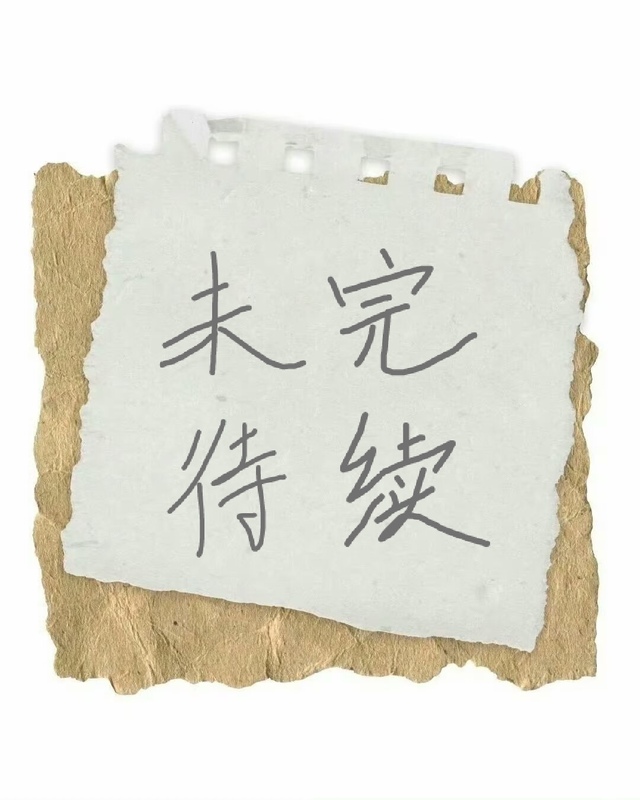 未完
待续